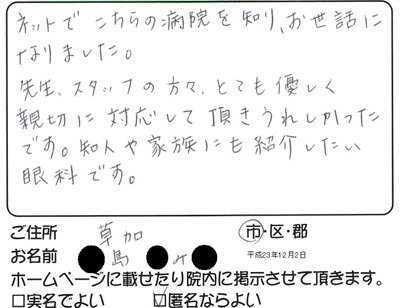 ネットでこちらの病院を知り、お世話に
なりました。
先生、スタッフの方々、とても優しく
親切に対応して頂きうれしかった
です。知人や家族にも紹介したい
眼科です。
ご住所 草加 市・区・郡
お名前 ●島●み● 平成23年12月2日
ホームページに載せたり院内に掲示させて頂きます。
□実名でよい ☑匿名ならよい